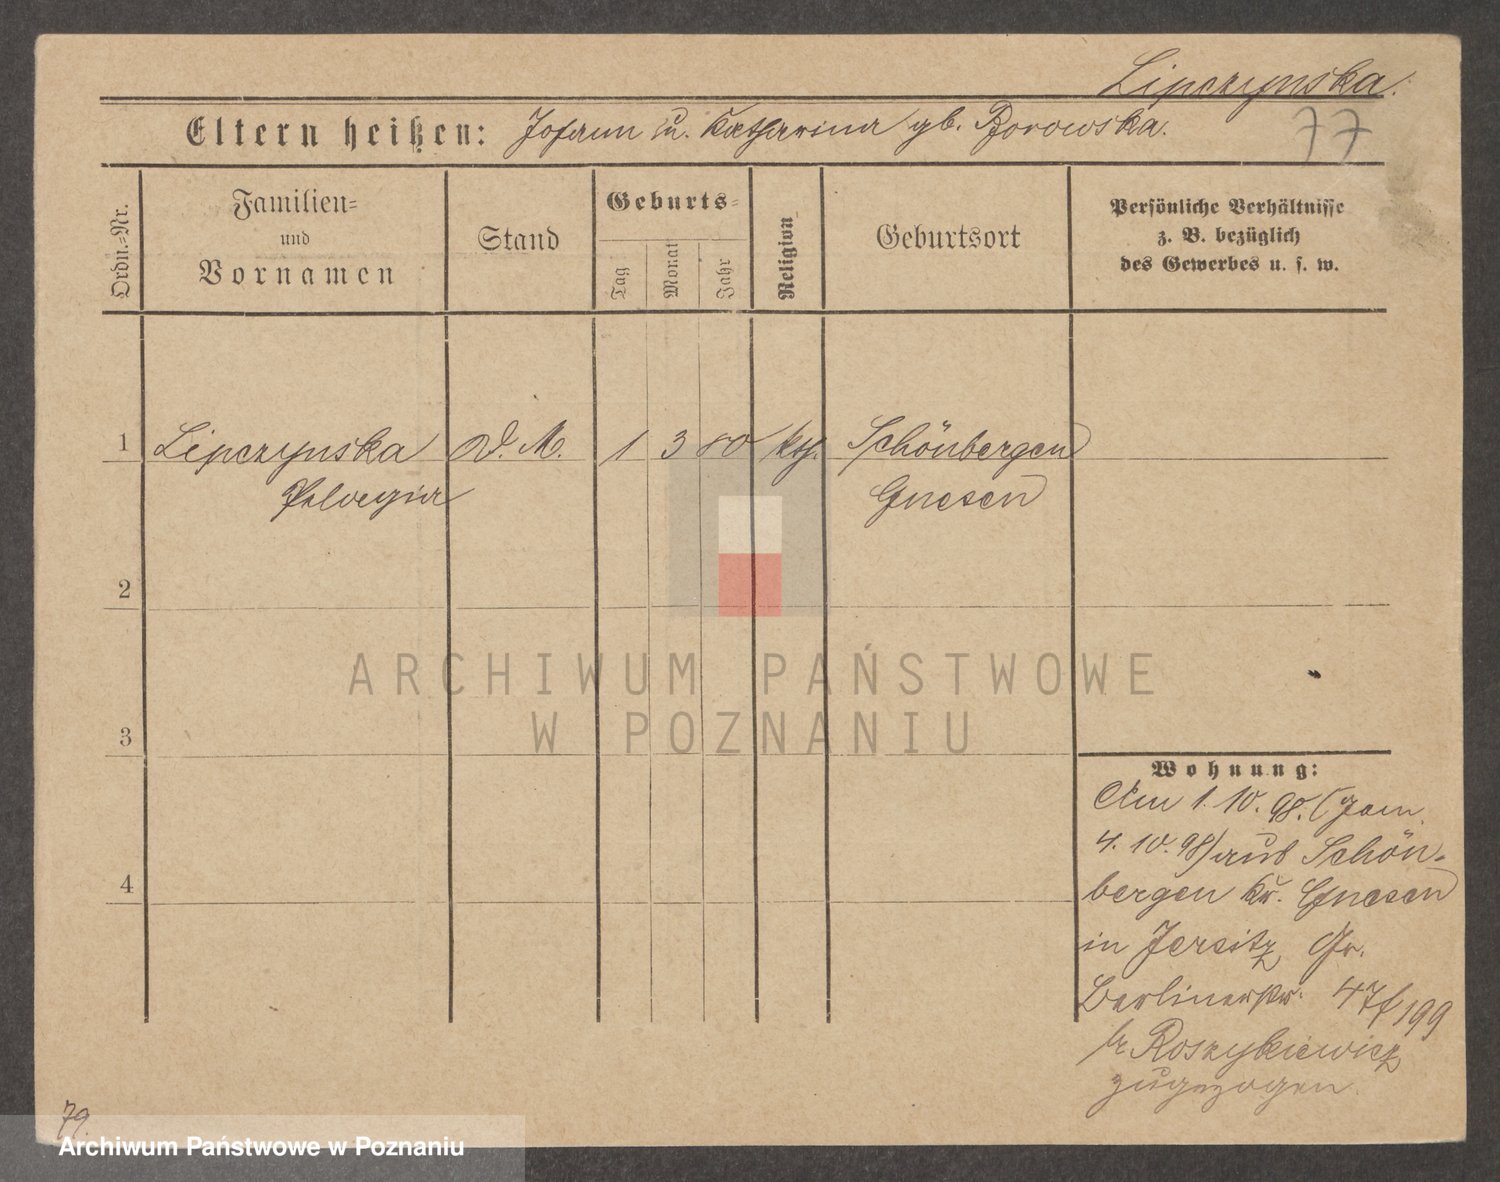 Lipczynska.
Eltern heißen: Johann u. Katharina gb. Borowska.
77
Ordn.-Nr.
Familien-
und
Vornamen
Stand
Geburts-
Tag
Monat
Jahr
Religion
Geburtsort
Persönliche Verhältnisse
z. B. bezüglich
des Gewerbes u. s. w.
1 Lipczynska D. M. 1 3 80 kth. Schönbergen
Pelagia Gnesen
2
3
4
ARCHIWUM PAŃSTWOWE
W POZNANIU
Wohnung:
Am 1. 10. 98. (gem.
4. 10. 98) aus Schön-
bergen Kr. Gnesen
in Jersitz Gr.
Berlinerstr. 47/199
Roszykiewicz
zugezogen.
79.
Archiwum Państwowe w Poznaniu